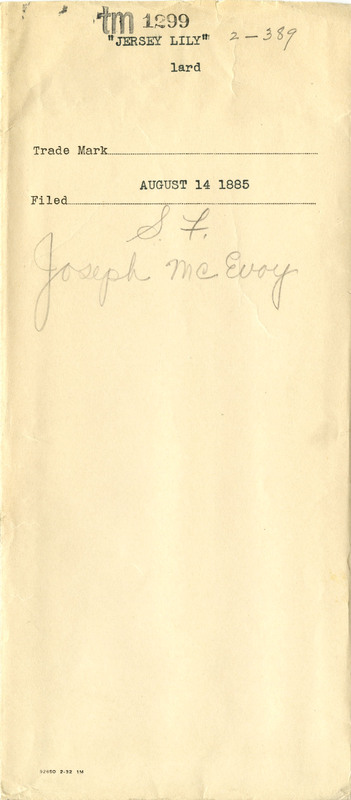 tm 1299
"JERSEY LILY" 2-389
lard
Trade Mark
AUGUST 14 1885
Filed
S. F.
Joseph McEvoy
2-32 1M